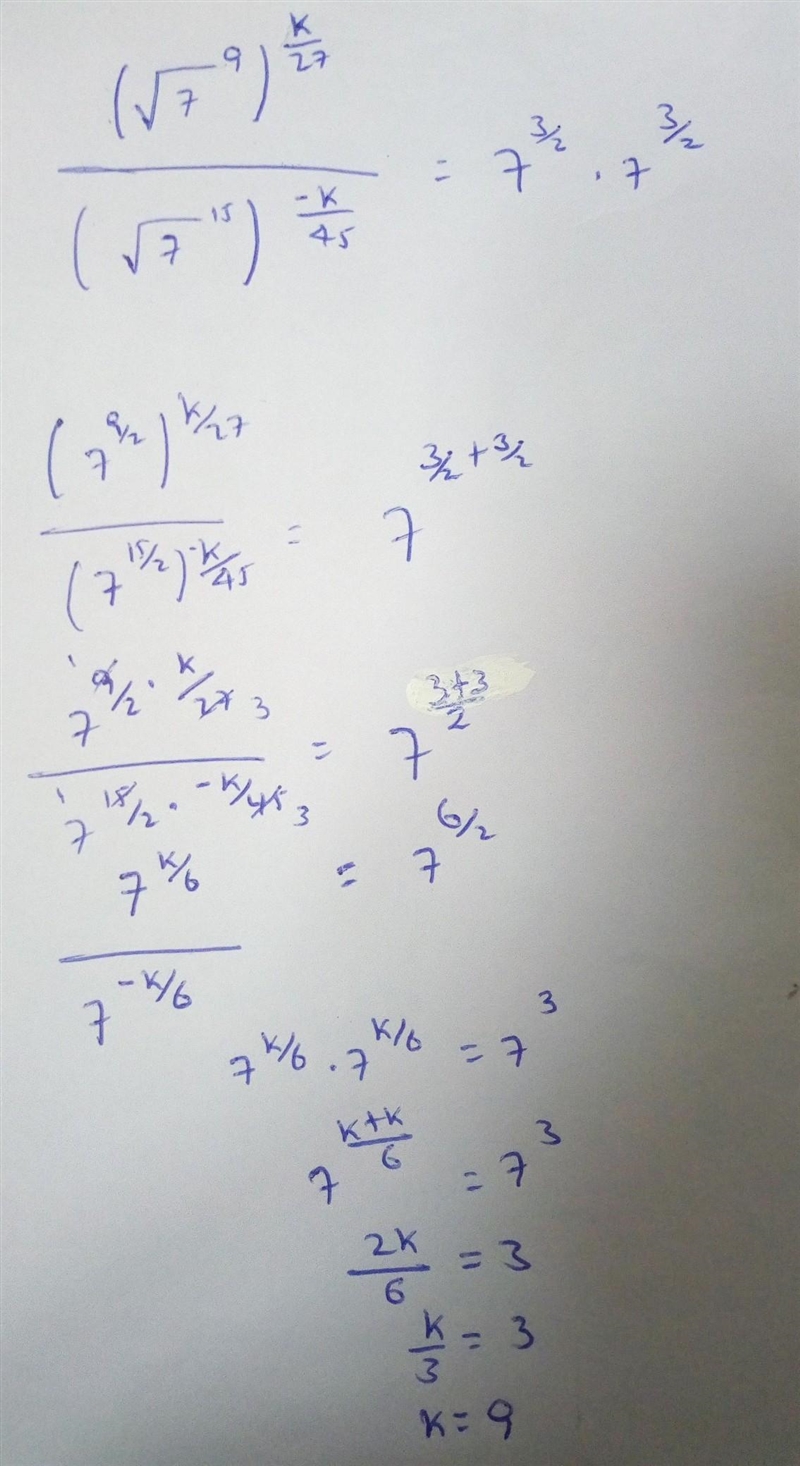 (√7^9)^(k/27) / (√7^15)^(-k/45) = 7^(3/2) . 7^(3/2)
(7^(9/2))^(k/27) / (7^(15/2))^(-k/45) = 7^(3/2 + 3/2)
7^(9/2 · k/27) 1 3 / 7^(15/2 · -k/45) 1 3 = 7^((3+3)/2)
7^(k/6) / 7^(-k/6) = 7^(6/2)
7^(k/6) . 7^(k/6) = 7^3
7^((k+k)/6) = 7^3
2k/6 = 3
k/3 = 3
k = 9